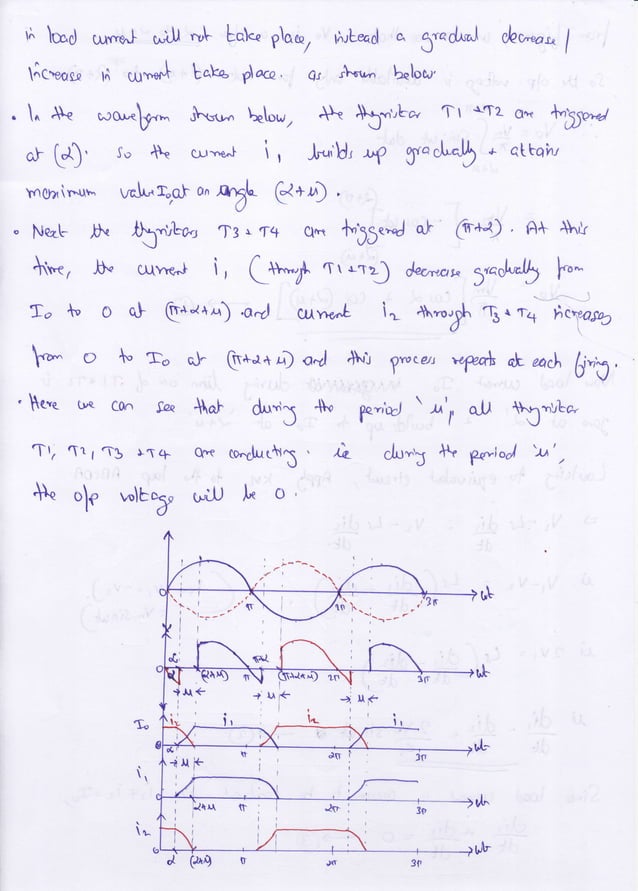 in load current will not take place, instead a gradual decrease /
increase in current takes place. as shown below.
• In the waveform shown below, the thyristor T1 & T2 are triggered
at (α). so the current i1 builds up gradually & attains
maximum value I0, at an angle (α+μ).
• Next the thyristors T3 & T4 are triggered at (π+α). At this
time, the current i1 (through T1 & T2) decrease gradually from
I0 to 0 at (π+α+μ) and current i2 through T3 & T4 increases
from 0 to I0 at (π+α+μ) and this process repeats at each firing.
• Here we can see that during the period 'μ', all thyristor
T1, T2, T3 & T4 are conducting. ie during the period 'μ',
the o/p voltage will be 0.
0 π 2π 3π ωt
α π+α
0 α (α+μ) π (π+α+μ) 2π 3π ωt
μ μ μ
I0 i2 i1 i2 i1
0 α π 2π 3π ωt
μ
i1
0 α+μ π 2π 3π ωt
i2
0 α (α+μ) π 2π 3π ωt